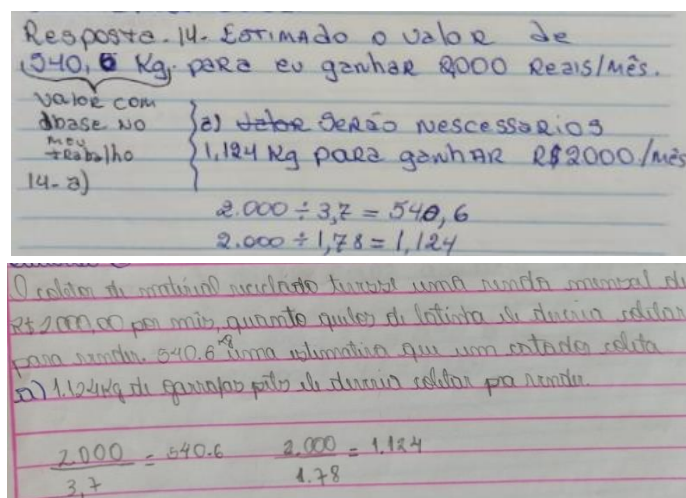 Resposta-14- Estimado o valor de
540,6 Kg, para eu ganhar 2000 Reais/mês.
valor com
base no
meu
trabalho
14-a)
a) valor Serão nescessarios
1,124 Kg para ganhar R$2000/mês
2.000 ÷ 3,7 = 540,6
2.000 ÷ 1,78 = 1,124
O coletor de material reciclado tivesse uma renda mensal de
R$2000,00 por mês, quanto quilos de latinha ele deveria coletar
para render. 540.6 uma estimativa que um catador coleta
a) 1.124Kg de garrafas pets ele deveria coletar pra render.
2000 / 3,7 = 540.6 2.000 / 1.78 = 1.124